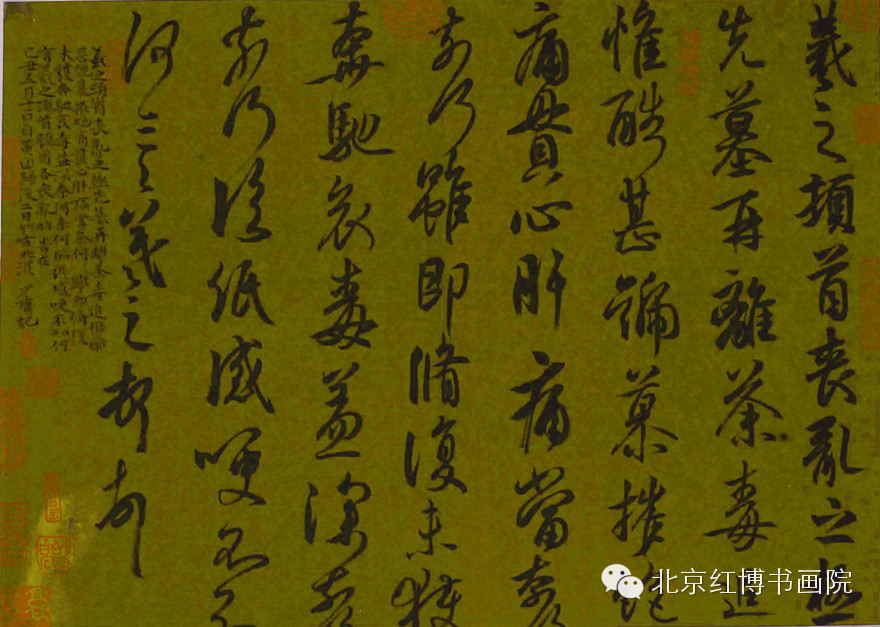 羲之頓首喪亂之極
先墓再離荼毒追
惟酷甚號慕摧絕
痛貫心肝痛當奈何
奈何雖即脩復未獲
奔馳哀毒益深奈何
奈何臨紙感哽不知
何言羲之頓首頓首
羲之頓首喪亂之極先墓再離荼毒追惟酷
甚號慕摧絕痛貫心肝痛當奈何雖即脩復
未獲奔馳哀毒益深奈何奈何臨紙感哽不知何
言羲之頓首頓首喪亂帖
己丑五月十一日自歸後二日記
北京红博书画院